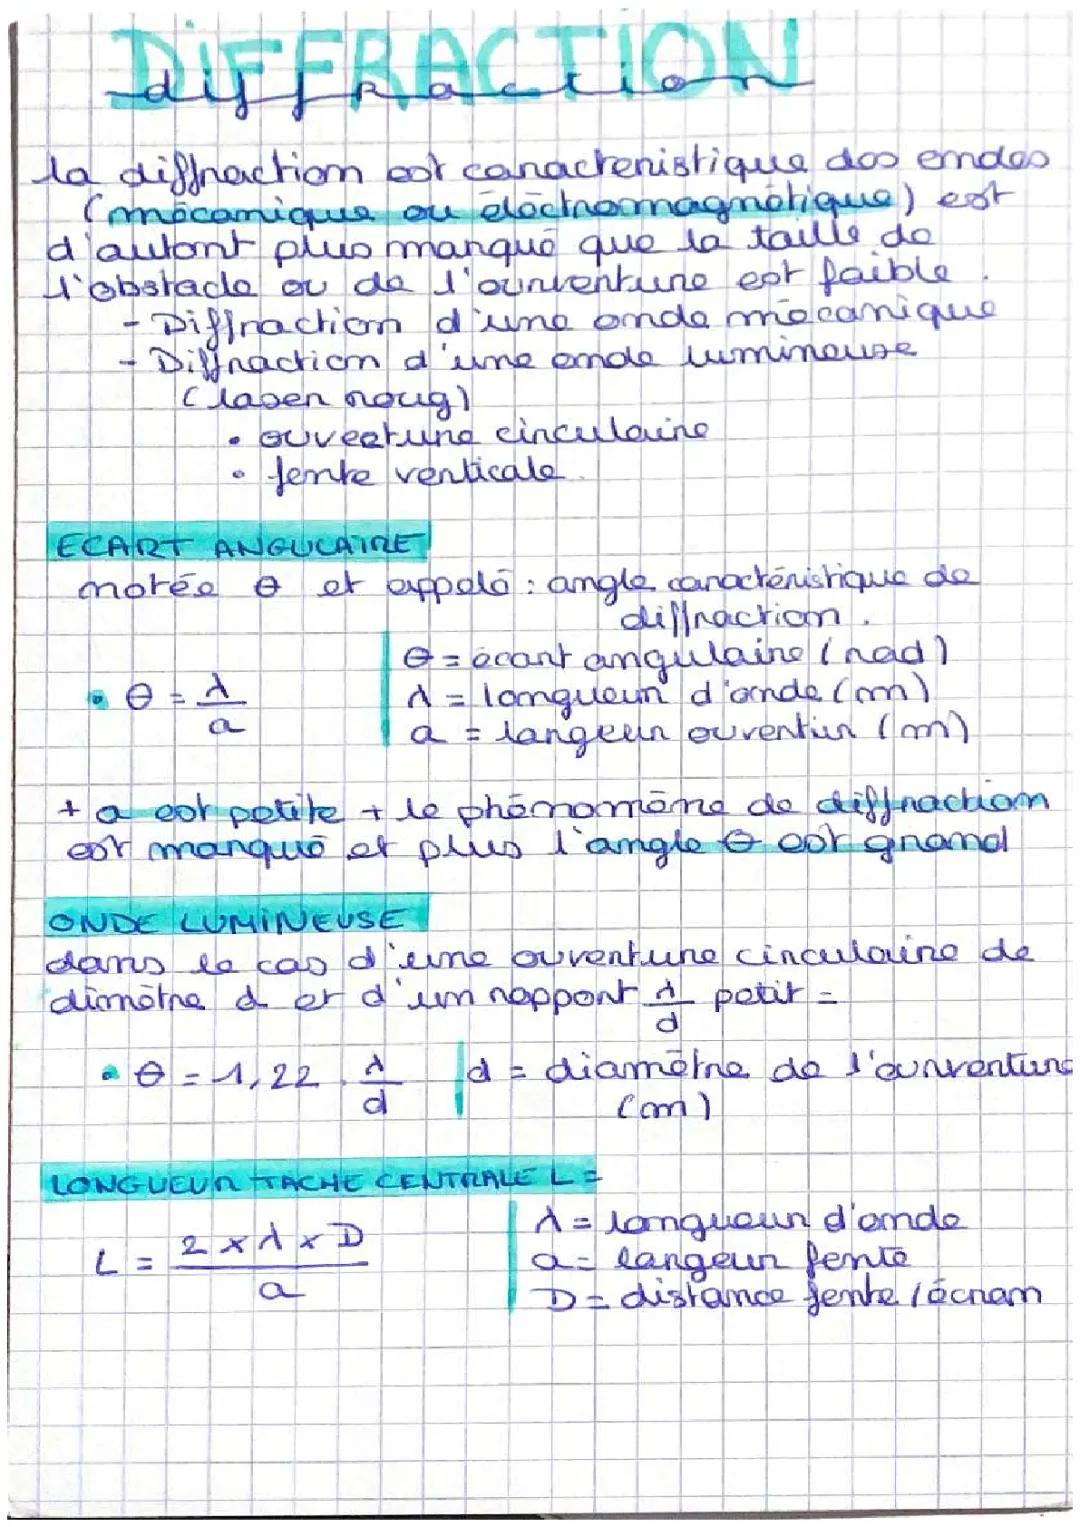 DIFFRACTION
diffraction
la diffraction est caractéristique des ondes
(mécanique ou électromagnétique) est
d'autant plus marqué que la taille de
l'obstacle ou de l'ouverture est faible.
- Diffraction d'une onde mécanique
- Diffraction d'une onde lumineuse
(laser roug)
• ouverture circulaire
• fente verticale.
ECART ANGULAIRE
notée θ et appelé : angle caractéristique de
diffraction.
θ = écart angulaire (rad)
• θ = λ / a
λ = longueur d'onde (m)
a = largeur ouvertur (m)
+ a est petite + le phénomène de diffraction
est marqué et plus l'angle θ est grand
ONDE LUMINEUSE
dans le cas d'une ouverture circulaire de
dimètre d et d'un rapport λ/d petit =
• θ = 1,22 . λ/d
d = diamètre de l'ouverture
(m)
LONGUEUR TACHE CENTRALE L =
L = 2 × λ × D / a
λ = longueur d'onde
a = largeur fente
D = distance fente / écran